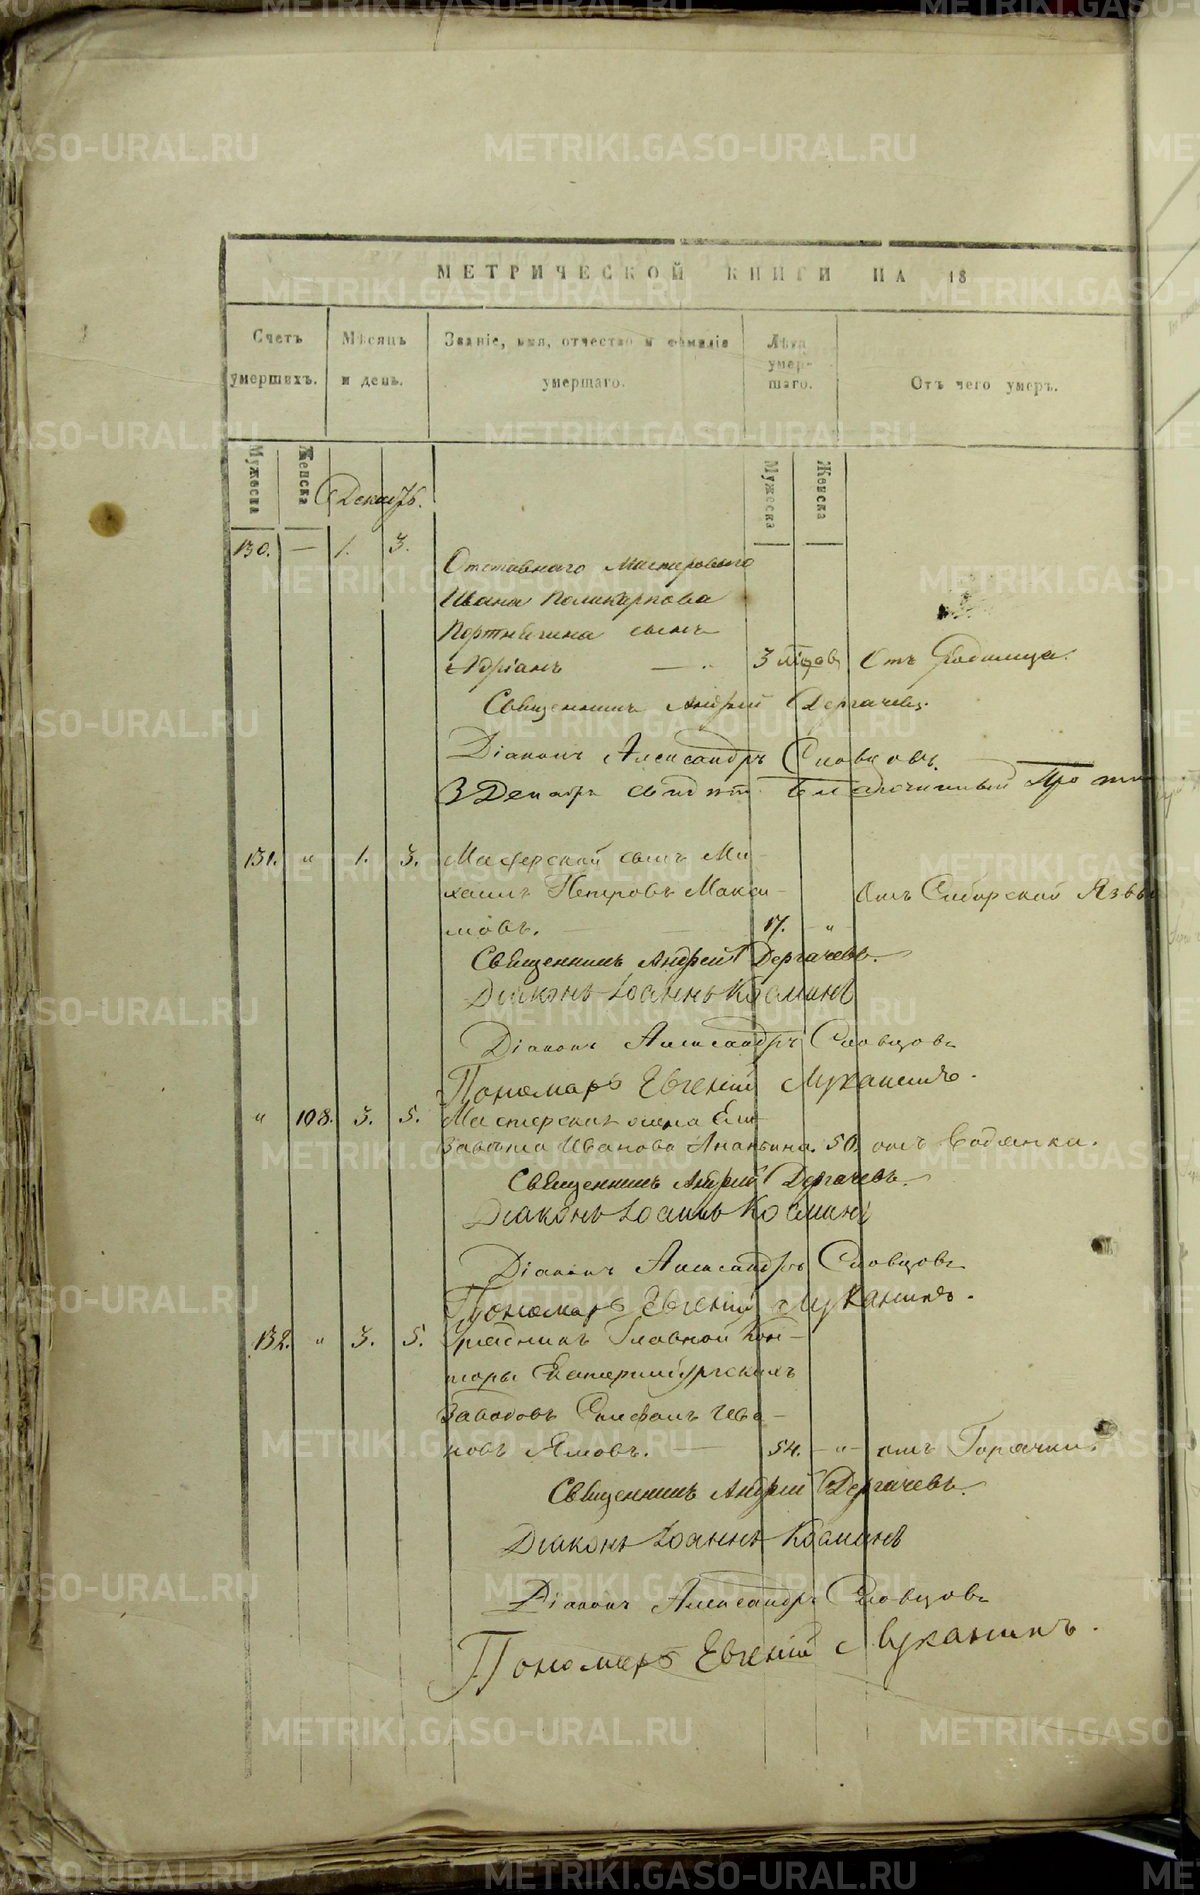 МЕТРИЧЕСКОЙ КНИГИ НА 18
Счетъ умершихъ.
Мѣсяцъ и день.
Званіе, имя, отчество и фамилія умершаго.
Лѣта умершаго.
Отъ чего умеръ.
Мужеска Женска
Мужеска Женска
Декабрь.
130. — 1. 3.
Отставнаго Мастероваго
Ивана Поликарпова
Портнягина сынъ
Адріанъ — 3 Отъ Родимца.
Священникъ Андрей Дергачевъ.
Діаконъ Александръ Словцовъ.
3 Декабря Благочинный
131. " 1. 3. Мастерской сынъ Ми-
хаилъ Петровъ Макси- Отъ Сибирской Язвы
мовъ. 17. "
Священникъ Андрей Дергачевъ.
Діаконъ Іоаннъ Косминъ
Діаконъ Александръ Словцовъ
Пономарь Евгеній Мукашинъ.
" 108. 3. 5. Мастерская жена Ели-
завета Иванова Ананьина. 50. отъ Водянки.
Священникъ Андрей Дергачевъ.
Діаконъ Іоаннъ Косминъ
Діаконъ Александръ Словцовъ
Пономарь Евгеній Муканинъ.
132. " 3. 5. Урядникъ Главной Кон-
торы Екатеринбургскихъ
Заводовъ Стефанъ Ива-
новъ Ямовъ. — 54. — " — отъ Горячки.
Священникъ Андрей Дергачевъ.
Діаконъ Іоаннъ Косминъ
Діаконъ Александръ Словцовъ
Пономарь Евгеній Муканинъ.
METRIKI.GASO-URAL.RU